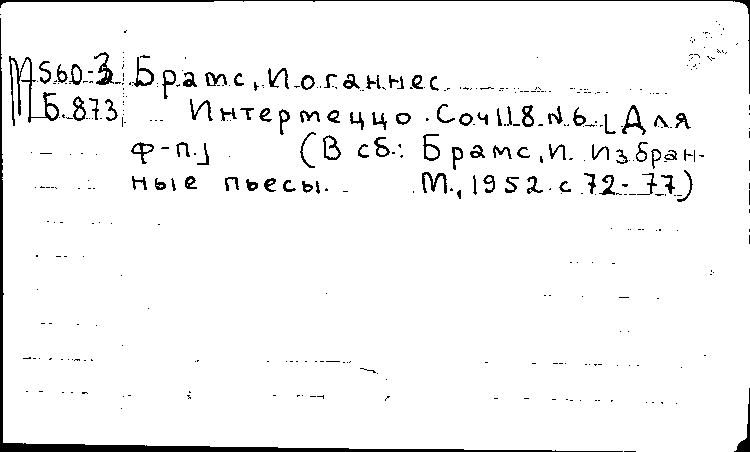 М560-3 Брамс, Иоганнес
Б.873 Интермеццо. Соч 118. N 6. [Для
ф-п.] (В сб.: Брамс, И. Избран-
ные пьесы. М., 1952. с 72-77)